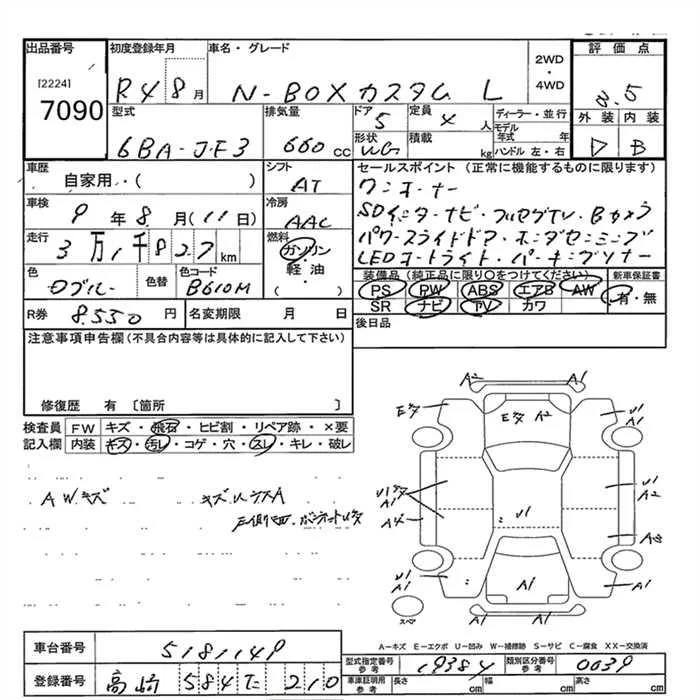 出品番号 初度登録年月 車名・グレード 評価点
[2224] R4 8月 N-BOXカスタム L 2WD・4WD
7090
外装 内装
B
型式 排気量 ドア 定員 ディーラー・並行
6BA-JF3 660cc 5 4人 モデル年式 年
形状 積載 kg ハンドル 左・右
車歴 シフト セールスポイント(正常に機能するものに限ります)
自家用・( ) AT ワンオーナー
車検 冷房 SDインターナビ・フルセグTV・Bカメラ
9年8月(11日) AAC パワースライドドア・ホンダセンシング
走行 燃料 LEDオートライト・パーキングソナー
3万1千827km ガソリン・軽油( )
色 色替 色コード 装備品(純正品に限り○をつけてください) 新車保証書
B610M PS PW ABS エアB AW 有・無
SR ナビ TV カワ
R券 8,550円 名変期限 月 日 後日品
注意事項申告欄(不具合内容等は具体的に記入して下さい)
修復歴 有 〔箇所 〕
検査員記入欄 FW キズ・飛石・ヒビ割・リペア跡・×要
内装 キズ・汚レ・コゲ・穴・スレ・キレ・破レ
AWキズ
A2 A1
A2 U1 A1
U1 A1 U1 A2
A4 U1
U1 A1 A1 A1
スペア
A-キズ E-エクボ U-凹み W-補修跡 S-サビ C-腐食 XX-交換済
車台番号 5181149 型式指定番号 参考 19384 類別区分番号 参考 0039
登録番号 高崎 584 て 210 車庫証明用 参考 長さ cm 幅 cm 高さ cm